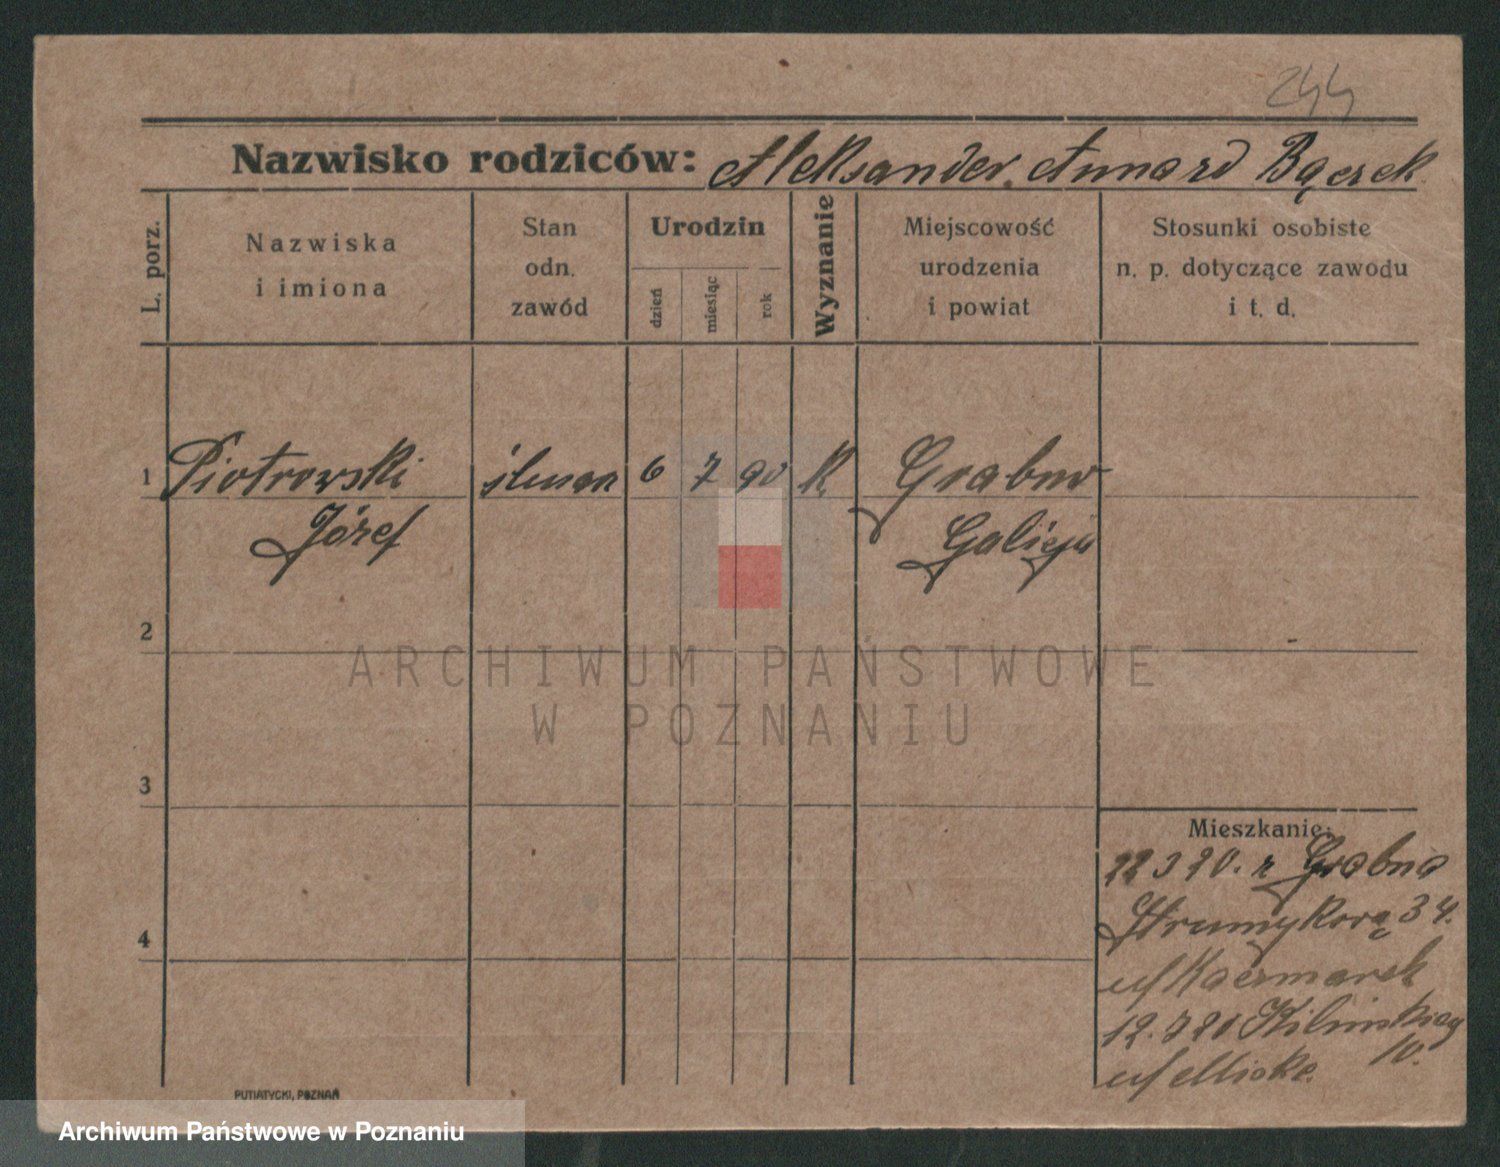 244
Nazwisko rodziców: Aleksander. Bączek
L. porz.
Nazwiska
i imiona
Stan
odn.
zawód
Urodzin
dzień
miesiąc
rok
Wyznanie
Miejscowość
urodzenia
i powiat
Stosunki osobiste
n. p. dotyczące zawodu
i t. d.
1 Piotrowski ślusar 6 7 90 k. Grabno
Józef Galicja
2
ARCHIWUM PAŃSTWOWE
W POZNANIU
3
4
Mieszkanie:
22 3 20. z Grabno
Strumykowa 34.
u/ Kaczmarek
12. 7 20 Kilińskieg
10.
u/
PUTIATYCKI, POZNAŃ
Archiwum Państwowe w Poznaniu